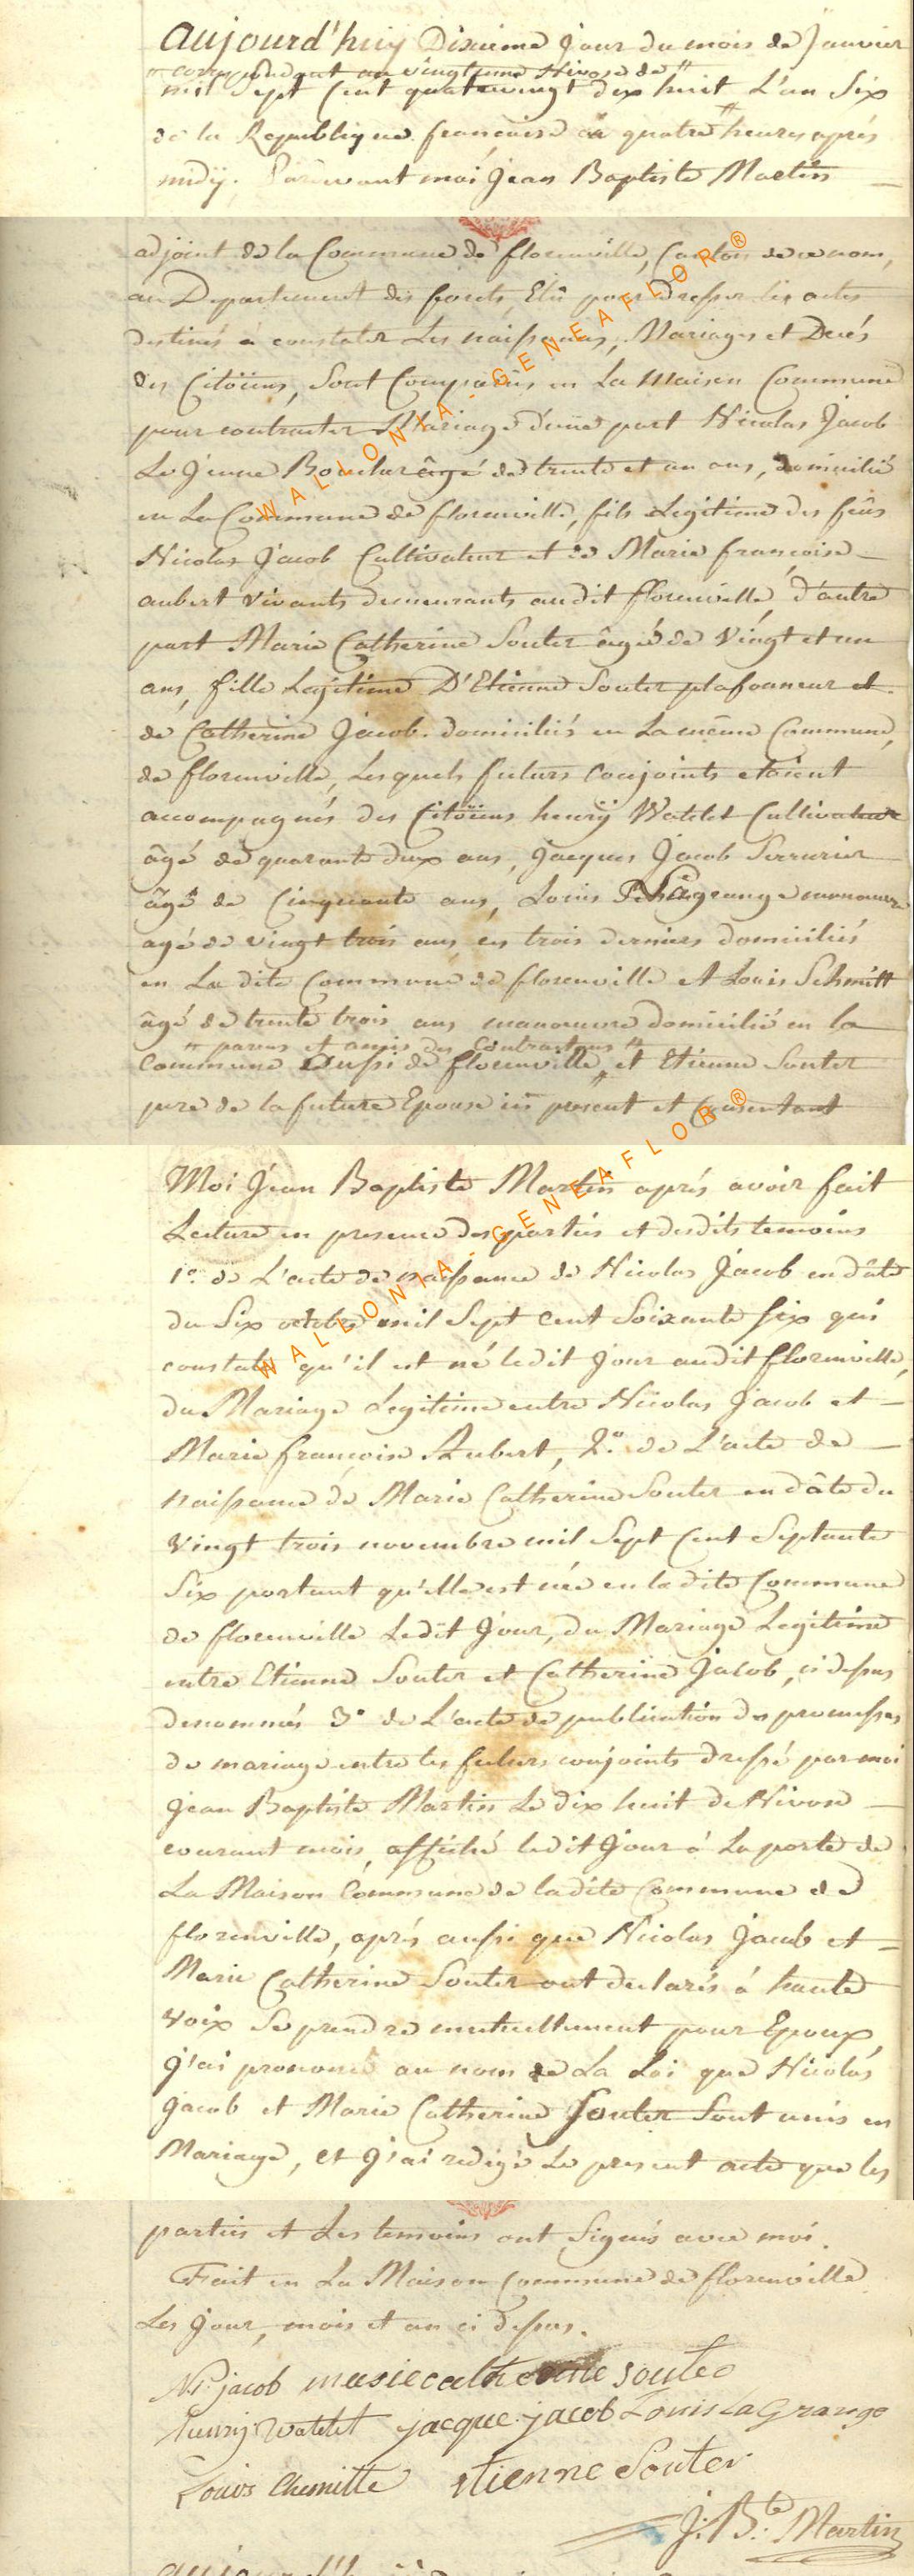 Aujourd'huy Dixieme jour du mois de Janvier
" correspondant au vingt une Nivose de "
mil Sept Cent quatrevingt dix huit L'an Six
de la Republique francaise à quatre heures aprés
midÿ. Pardevant moi Jean Baptiste Martin
adjoint de la Commune de florenville, Canton de ce nom,
au Departement des forets, Elu pour dresser les actes
destinés à constater Les naissances, Mariages et Decés
des Citöiens, Sont Comparus en La Maison Commune
pour contracter Mariage d'une part Nicolas Jacob
Le Jeune Boucher âgé de trente et un ans, domicilié
en La Commune de florenville, fils Legitime des feûs
Nicolas Jacob Cultivateur et de Marie francoise
aubert vivants demeurants audit florenville, d'autre
part Marie Catherine Souter âgé de Vingt et un
ans, fille Legitime D'Etienne Souter plafonneur et
de Catherine Jacob domiciliés en La même Commune,
de florenville, Lesquels futurs Conjoints etoient
accompagnés des Citöiens henrÿ Watelet Cultivateur
âgé de quarante deux ans, Jacques Jacob Serrurier
âgé de Cinquante ans, Louis LaGrange manouvre
agé de vingt trois ans, ces trois derniers domiciliés
en La dite Commune de florenville et Louis Schmitt
âgé de trente trois ans manouvre domicilié en la
" parens et amis des Contractans "
Commune aussi de florenville, et Etienne Souter
pere de la future Epouse ici present et Consentant
Moi Jean Baptiste Martin aprés avoir fait
Lecture en presence des parties et desdits temoins
1.º de L'acte de naissance de Nicolas Jacob en dâte
du Six octobre mil Sept cent Soixante six qui
constate qu'il est né ledit jour audit florenville,
du Mariage Legitime entre Nicolas Jacob et
Marie francoise Aubert, 2.º de L'acte de
naissance de Marie Catherine Souter en dâte du
Vingt trois novembre mil Sept Cent Septante
Six portant qu'elle est née en la dite Commune
de florenville Ledit Jour, du Mariage Legitime
entre Etienne Souter et Catherine Jacob, ci dessus
denommés 3º de L'acte de publication des promesses
de mariage entre les futurs conjoints dressé par moi
Jean Baptiste Martin Le dix huit de Nivose
courant mois, affiché ledit Jour à La porte de
La Maison Commune de ladite Commune de
florenville, aprés aussi que Nicolas Jacob et
Marie Catherine Souter ont declarés à haute
Voix Se prendre mutuellement pour Epoux
J'ai prononcé au nom de La Loi que Nicolas
Jacob et Marie Catherine Souter Sont unis en
Mariage, et J'ai redigé Le present acte que les
parties et Les temoins ont Signés avec moi.
Fait en La Maison Commune de florenville
Les Jour, mois et an ci dessus.
Ns: jacob marie catherine souter
henrÿ watelet jacque jacob Louis La Grange
Louis Chemitte etienne Souter
J: B:te Martin
WALLONIA - GENEAFLOR ®
WALLONIA - GENEAFLOR ®